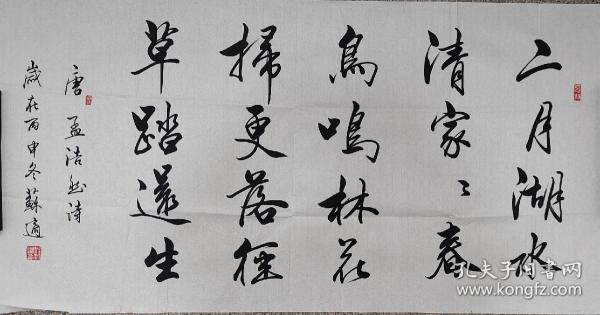 二月湖水
清家々春
鳥鳴林花
掃更落徑
草踏還生
唐 孟浩然诗
歲在丙申冬蘇適
孔夫子旧书网
www.kongfz.com